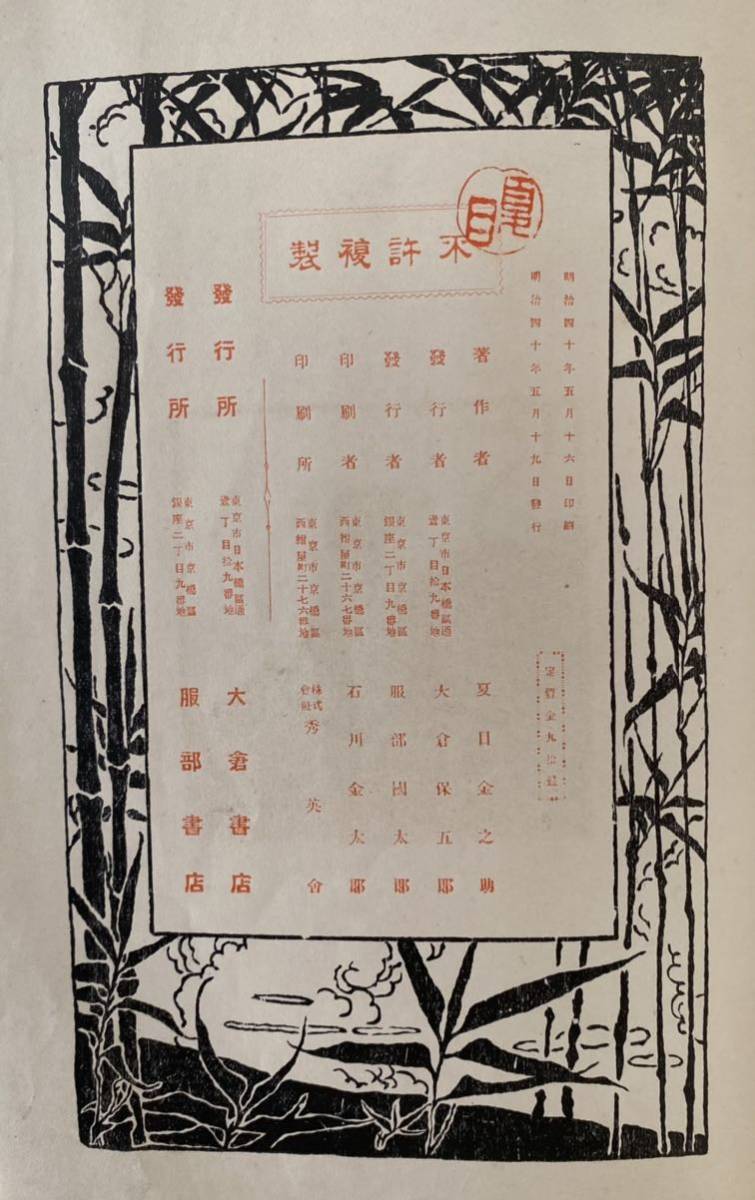 夏目
不許複製
明治四十年五月十六日印刷
明治四十年五月十九日發行
定價金九拾錢
著作者 夏目金之助
發行者 東京市日本橋區通壹丁目拾九番地 大倉保五郎
發行者 東京市京橋區銀座二丁目九番地 服部國太郎
印刷者 東京市京橋區西紺屋町二十六七番地 石川金太郎
印刷所 東京市京橋區西紺屋町二十七六番地 株式會社 秀英會
發行所 東京市日本橋區通壹丁目拾九番地 大倉書店
發行所 東京市京橋區銀座二丁目九番地 服部書店